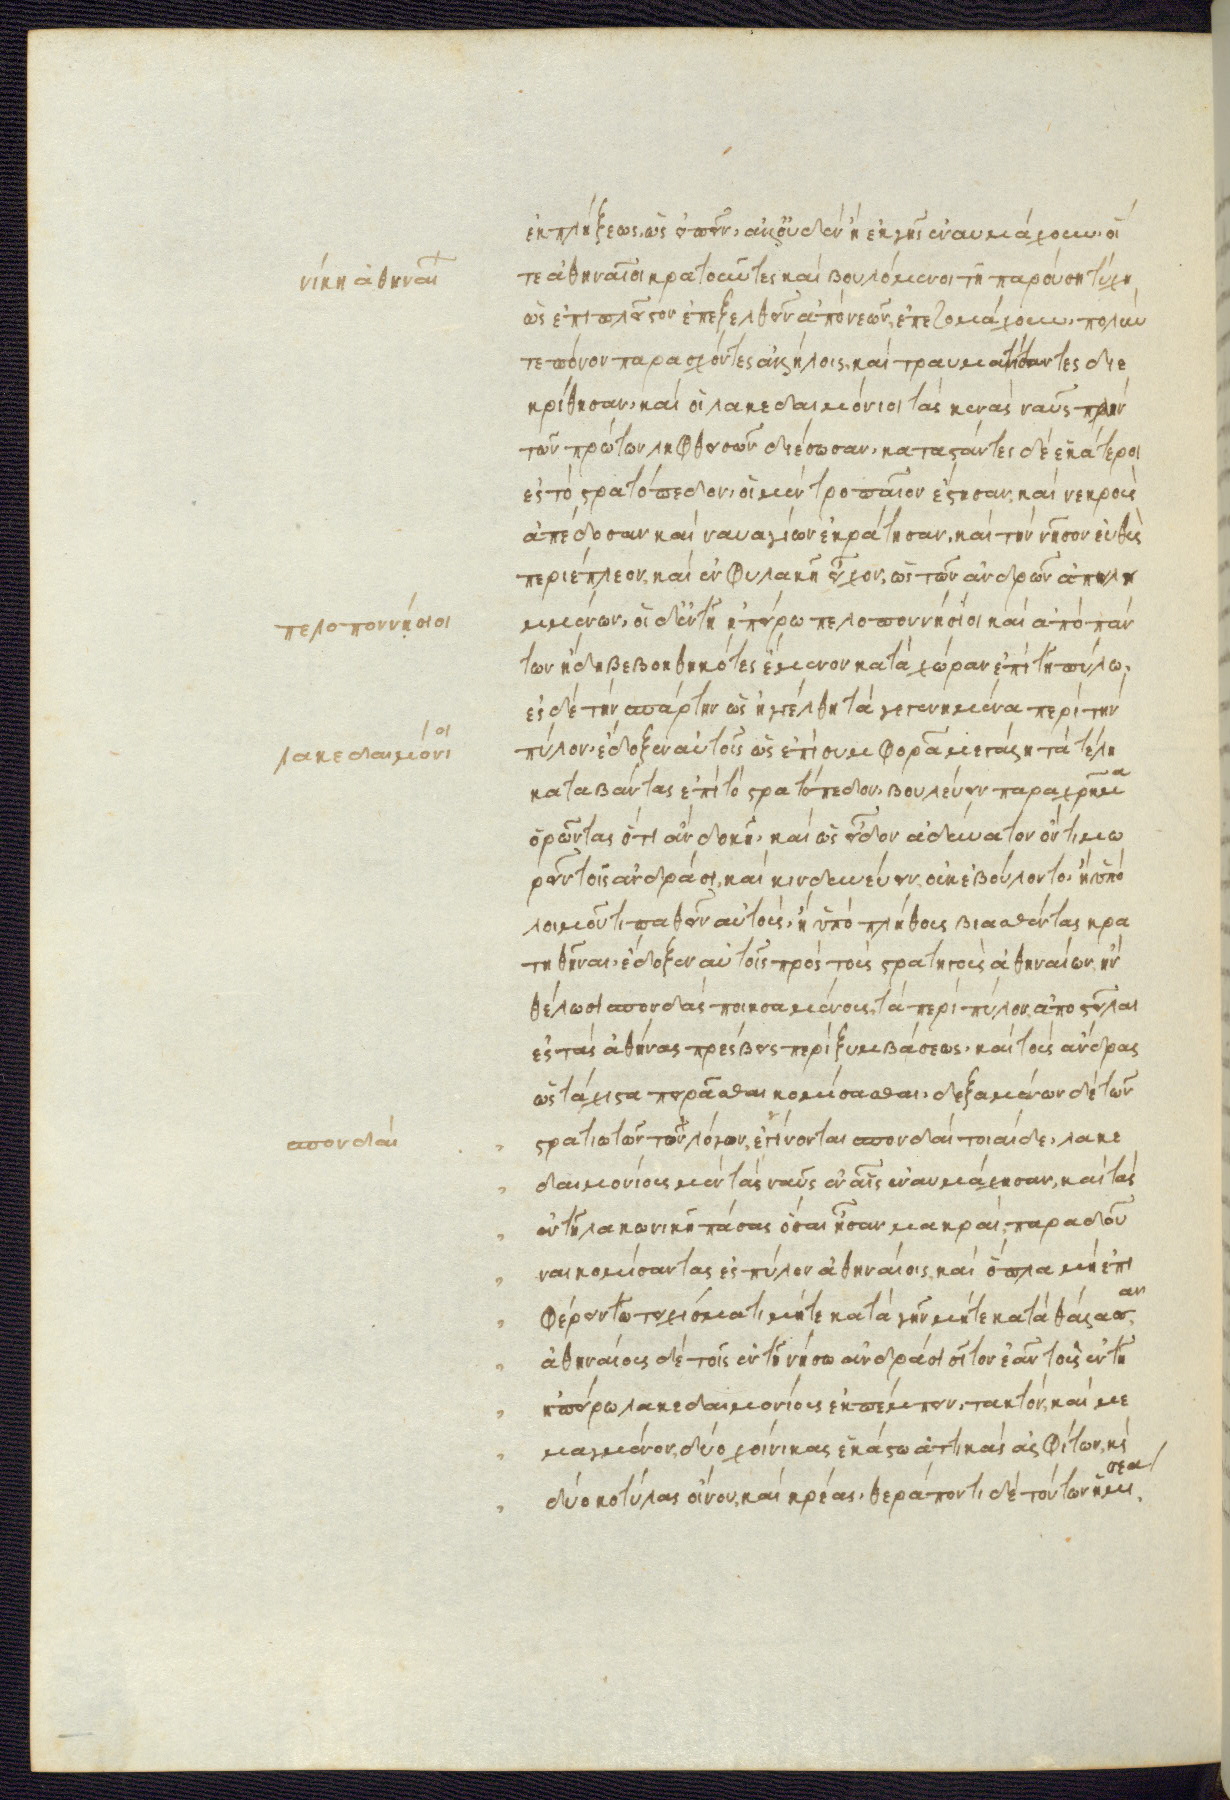 ἐκπλήξεως, ὡς εἰπεῖν, ἄλλο οὐδὲν ἢ ἐκ γῆς ἐναυμάχουν, οἵ
νίκη ἀθηναί
τε ἀθηναῖοι κρατοῦντες καὶ βουλόμενοι τῆ παρούση τύχη
ὡς ἐπιπλεῖστον ἐπεξελθεῖν ἀπὸ νεῶν, ἐπεζομάχουν, πολύν
τε πόνον παρασχόντες ἀλλήλοις, καὶ τραυματίσαντες διε
κρίθησαν, καὶ οἱ λακεδαιμόνιοι τὰς κενὰς ναῦς πλὴν
τῶν πρώτων ληφθεισῶν διέσωσαν, καταστάντες δὲ ἑκάτεροι
ἐς τὸ στρατόπεδον, οἱ μὲν τροπαῖον ἔστησαν, καὶ νεκροὺς
ἀπέδοσαν καὶ ναυαγίων ἐκράτησαν, καὶ τὴν νῆσον εὐθὺς
περιέπλεον, καὶ ἐν φυλακῆ εἶχον, ὡς τῶν ἀνδρῶν ἀπειλη
πελοποννήσιοι
μμένων, οἱ δ' ἐν τῆ ἠπείρω πελοποννήσιοι καὶ ἀπὸ πάν
των ἤδη βεβοηθηκότες ἔμενον κατὰ χώραν ἐπὶ τῆ πύλω,
ἐς δὲ τὴν σπάρτην ὡς ἠγγέλθη τὰ γεγενημένα περὶ τὴν
λακεδαιμόνιοι
πύλον, ἔδοξεν αὐτοῖς ὡς ἐπὶ συμφορᾶ μεγάλη τὰ τέλη
καταβάντας ἐπὶ τὸ στρατόπεδον, βουλεύειν παραχρῆμα
ὁρῶντας ὅτι ἂν δοκῆ, καὶ ὡς εἶδον ἀδύνατον ὂν τιμω
ρεῖν τοῖς ἀνδράσι, καὶ κινδυνεύειν οὐκ ἐβούλοντο, ἢ ὑπὸ
λοιμοῦ τι παθεῖν αὐτοὺς, ἢ ὑπὸ πλήθους βιασθέντας κρα
τηθῆναι, ἔδοξεν αὐτοῖς πρὸς τοὺς στρατηγοὺς ἀθηναίων, ἢν
θέλωσι σπονδὰς ποιησαμένους, τὰ περὶ πύλον, ἀποστεῖλαι
ἐς τὰς ἀθήνας πρέσβεις περὶ ξυμβάσεως, καὶ τοὺς ἄνδρας
ὡς τάχιστα πειρᾶσθαι κομίσασθαι, δεξαμένων δὲ τῶν
σπονδαί
στρατιωτῶν τῶν λόγων, ἐγίνονται σπονδαὶ τοιαίδε, λακε
δαιμονίους μὲν τὰς ναῦς ἐν αἷς ἐναυμάχησαν, καὶ τὰς
ἐν τῆ λακωνικῆ πάσας ὅσαι ἦσαν μακραὶ, παραδοῦ
ναι κομίσαντας ἐς πύλον ἀθηναίοις, καὶ ὅπλα μὴ ἐπι
φέρειν τῶ τειχίσματι μήτε κατὰ γῆν μήτε κατὰ θάλασσαν,
ἀθηναίους δὲ τοῖς ἐν τῆ νήσω ἀνδράσι σῖτον ἐᾶν τοὺς ἐν τῆ
ἠπείρω λακεδαιμονίους ἐκπέμπειν, τακτὸν, καὶ με
μαγμένον, δύο χοίνικας ἑκάστω ἀττικὰς ἀλφίτων, καὶ
δύο κοτύλας οἴνου, καὶ κρέας, θεράποντι δὲ τούτων ἡμίσεα,